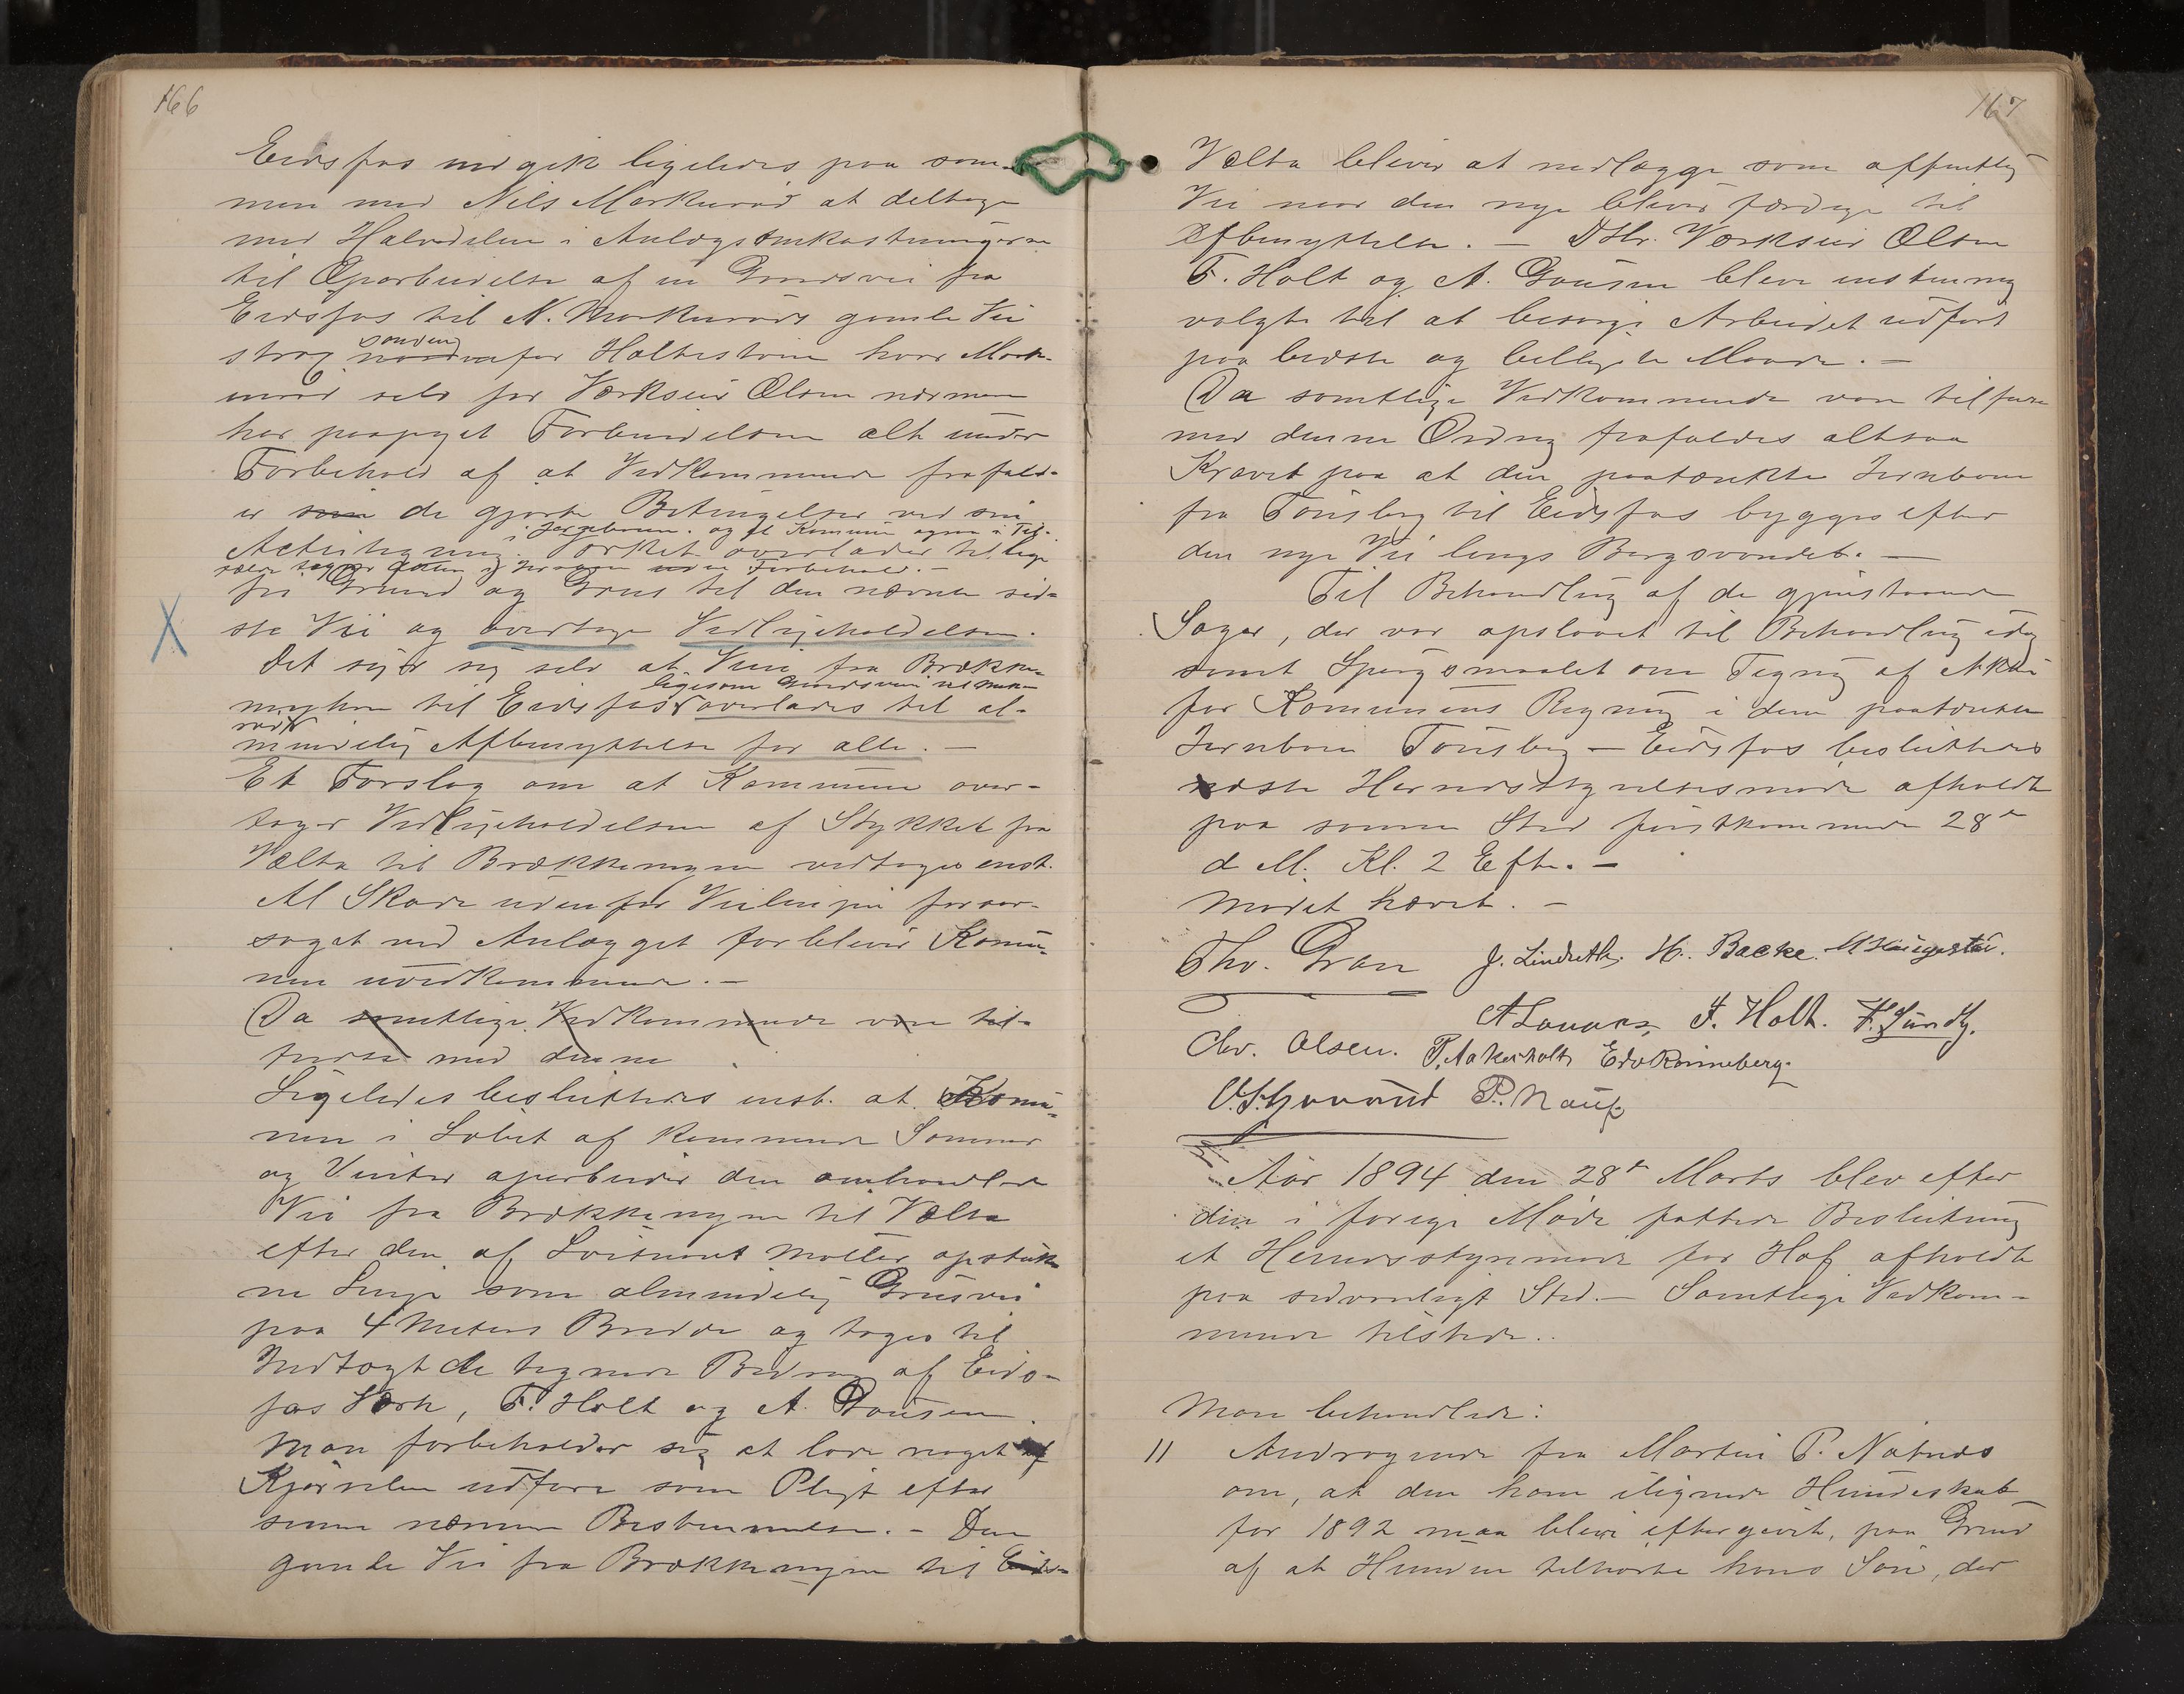 166
Eidsfos indgik ligeledes paa sam-
men med Nils Morkeröd at deltage
med Halvdelen i Anlægsomkostningerne
til Oparbeidelse af en Grusvei fra
Eidsfos til N. Morkeröds gamle Vei
strax søndenfor Holtestøen hvor Mork-
eröd selv for Værkseier Olsen nærmere
har paapeget Forbindelsen alt under
Forbehold af at Vedkommende frafald-
er de gjorte Betingelser ved sin
i Jernbanen. og
Actietegning. Værket overlader tillige
Forbehold. -
fri Grund og Grus til den nævnte sid-
ste Vei og overtage Vedligeholdelsen.
Det siger sig selv at Veien fra Brække-
ligesom Grusveien til Mork-
myhren til Eidsfos overlades til al-
röd
mindelig Afbenyttelse for alle. -
Et Forslag om at Kommunen over-
tager Vedligeholdelsen af Stykket fra
Vælta til Brækkemyren vedtoges enst.
Al Skade udenfor Veilinjen foraar-
saget ved Anlægget forbliver Komu-
nen uvedkommende. -
Da samtlige Vedkommende vare til-
fredse med denne
Ligeledes besluttedes enst. at Komu-
nen i Løbet af kommende Sommer
og Vinter oparbeider den omhandlede
Vei fra Brækkemyren til Vælta
efter den af Løitnant Møller opstukk-
ne Linje som almindelig Grusvei
paa 4 Meters Bredde og toges til
Indtægt de tegnede Bidrag af Eids-
fos Værk, F. Holt og A. Gausen.
Man forbeholder sig at lade noget af
Kjørselen udføre som Pligt efter
senere nærmere Bestemmelse. - Den
gamle Vei fra Brækkemyren til Eids-
167
Vælta bliver at nedlægge som offentlig
Vei naar den nye bliver færdig til
Afbenyttelse. - DHr. Værkseier Olsen
F. Holt og A. Gausen bleve enstemmig
valgte til at besørge Arbeidet udført
paa bedste og billigste Maade. -
Da samtlige Vedkommende vare tilfredse
med denne Ordning frafaldes altsaa
Kravet paa at den paatænkte Jernbane
fra Tønsberg til Eidsfos bygges efter
den nye Vei langs Bergsvandet. -
Til Behandling af de gjenstaaende
Sager, der var opslaaet til Behandling idag
samt Spørgsmaalet om Tegning af Aktier
for Komunens Regning i den paatænkte
Jernbane Tönsberg - Eidsfos besluttedes
næste Herredsstyrelsesmøde afholdt
paa samme Sted førstkommende 28de
d M. Kl. 2 Efter. -
Mødet hævet. -
Thv. Gran J. Lindseth. H. Backe.
F. Holt. F. Sundby.
Chr. Olsen. P. Aakerholt Edv Rønneberg.
P. Nauf
Aar 1894 den 28de Marts blev efter
den i forrige Møde fattede Beslutning
et Herredsstyremøde for Hof afholdt
paa sedvanligt Sted. - Samtlige Vedkom-
mende tilstede..
Man behandlede:
11 Andragende fra Martin P. Næbnæs
om, at den ham ilignede Hundeskat
for 1892 maa blive eftergivet, paa Grund
af at Hunden tilhørte hans Søn, der